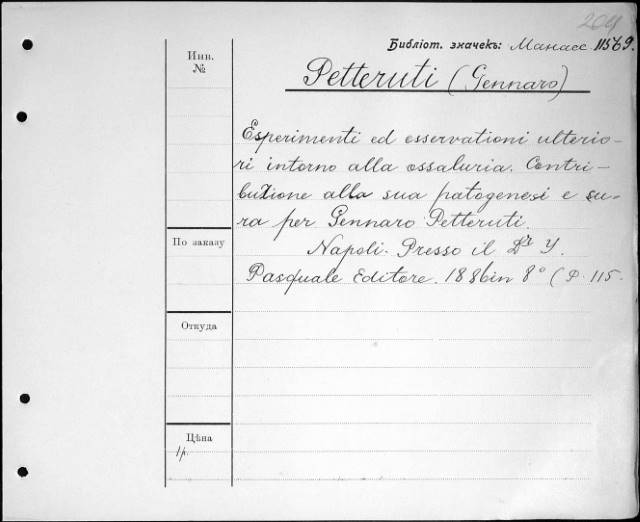 204
Библіот. значекъ: Манасс 11569.
Инв.
№
Petteruti (Gennaro)
Esperimenti ed osservationi ulterio-
ri intorno alla ossaluria. Contri-
buzione alla sua patogenesi e cu-
ra per Gennaro Petteruti.
По заказу
Napoli. Presso il Dr Y.
Pasquale Editore. 1886 in 8° (P. 115.
Откуда
Цѣна
1р.